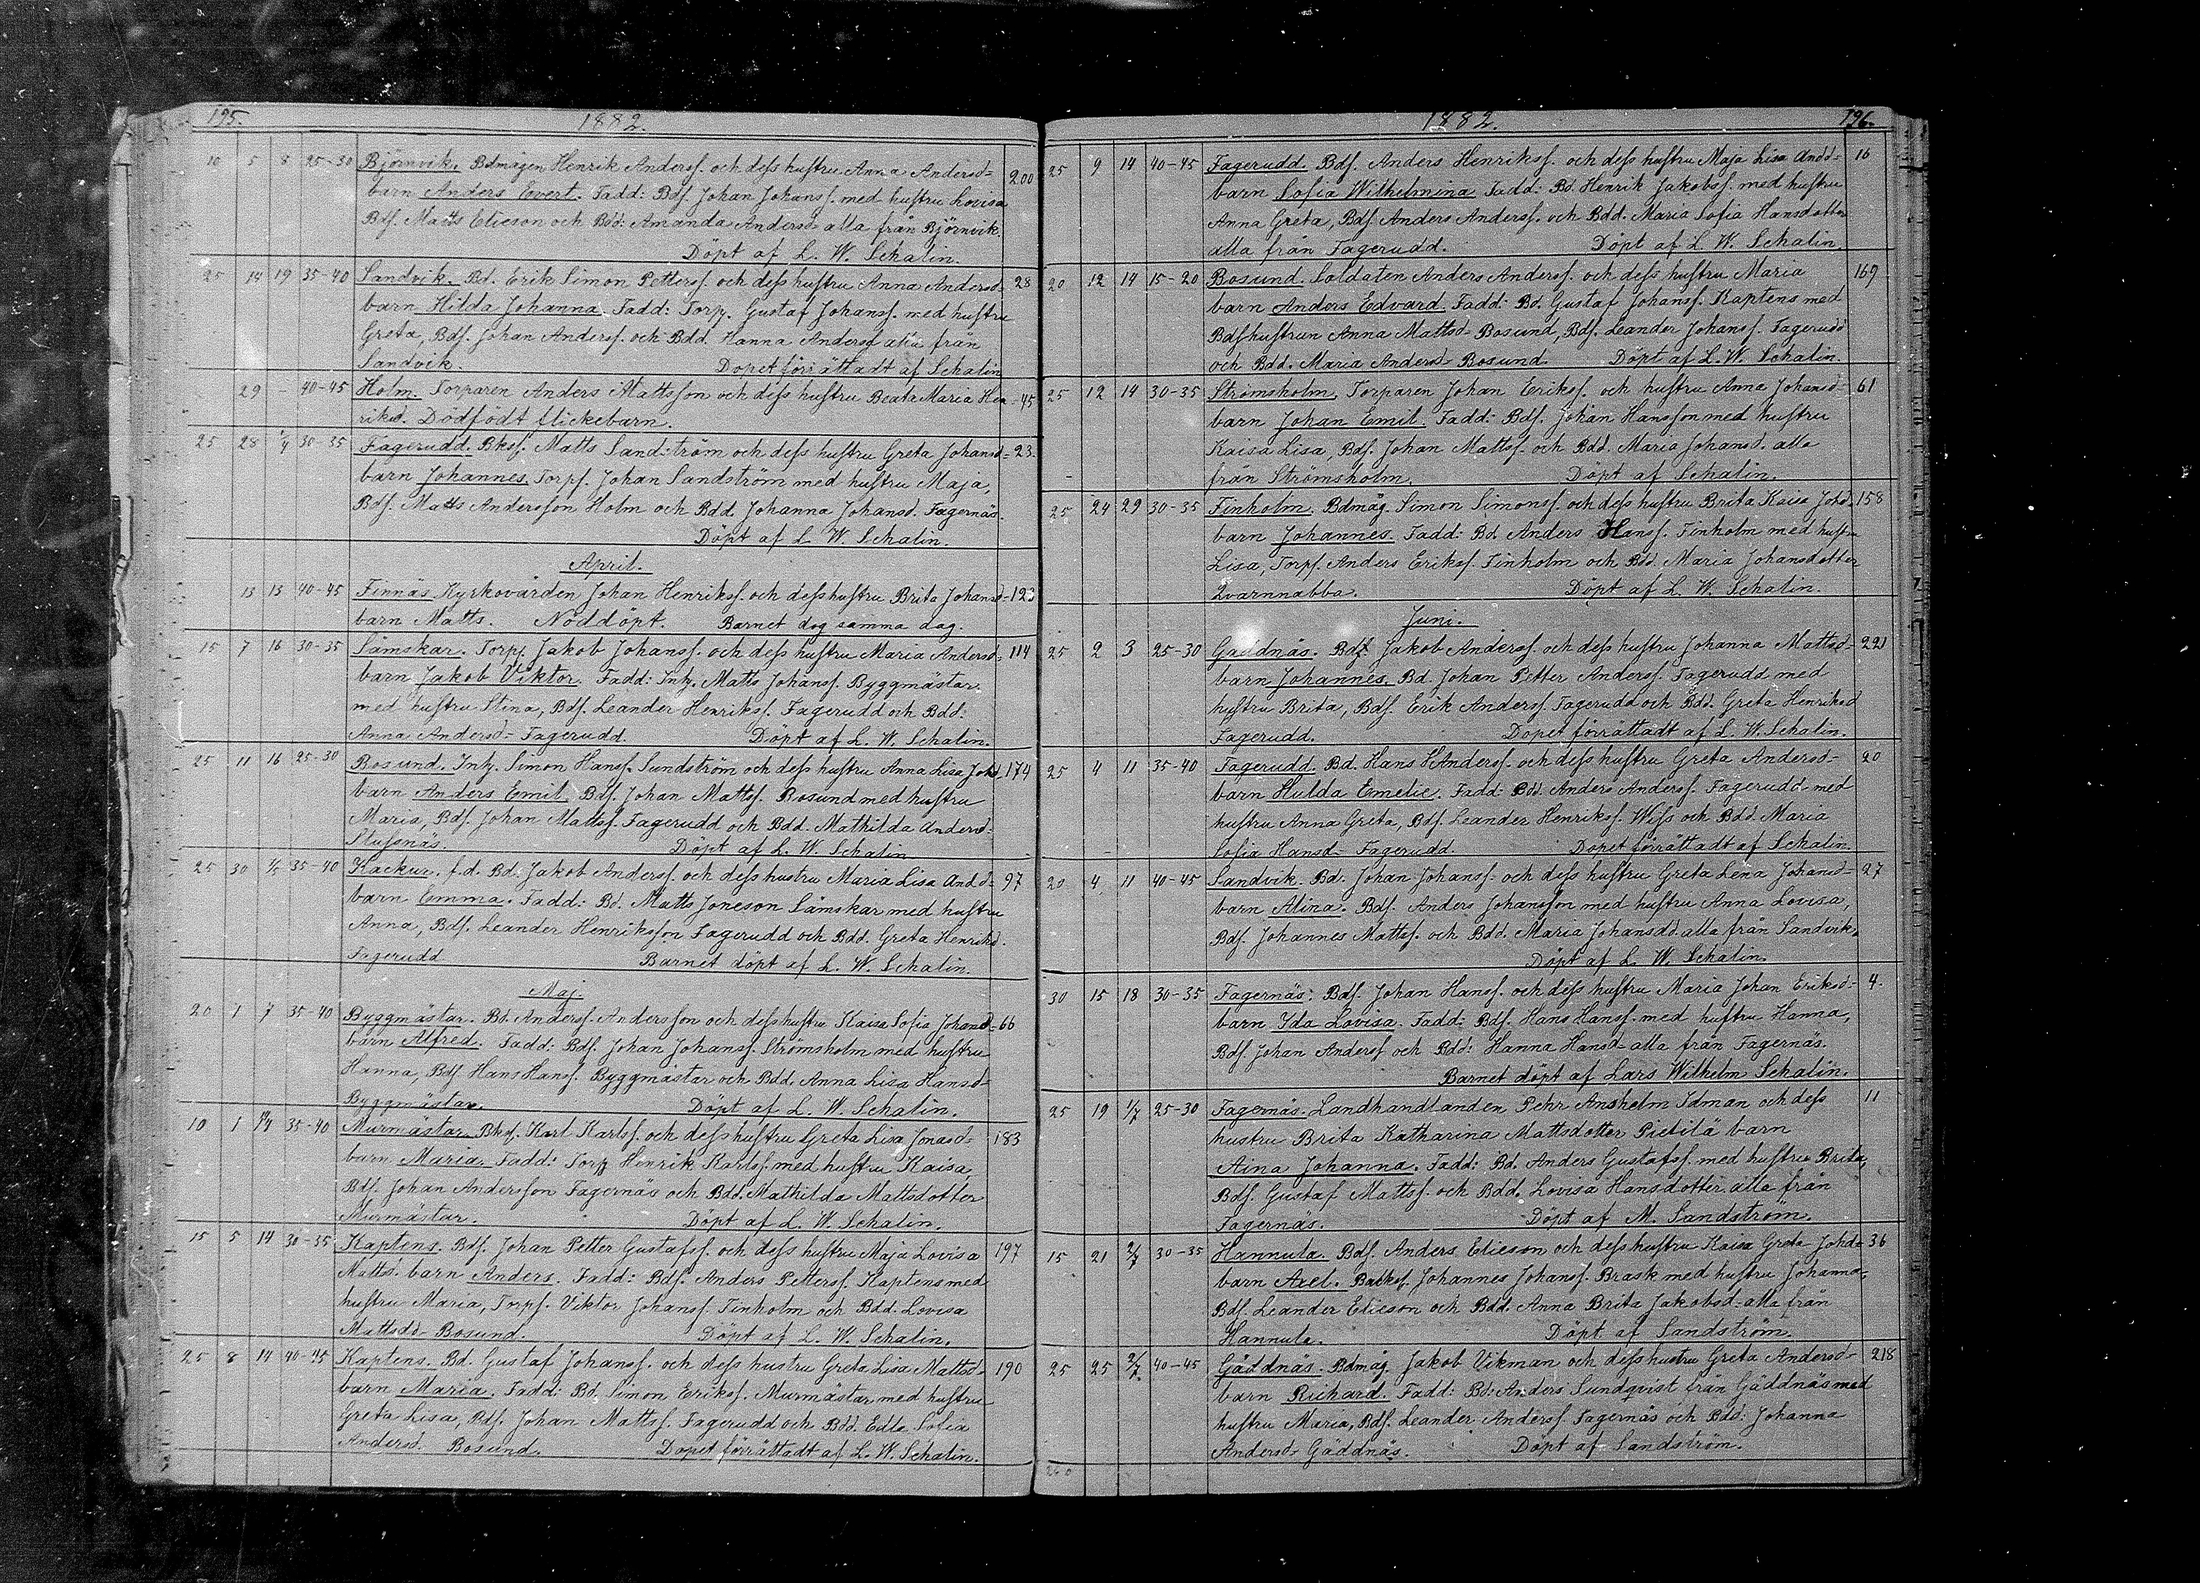 195.
1882.
10 5 8 25-30 Björnvik. Bdmågen Henrik Andersſ. och deſs huſtru Anna Andersd- 200
barn Anders Evert. Fadd: Bdſ. Johan Johansſ. med huſtru Lovisa
Bdſ. Matts Elieson och Bdd: Amanda Andersd- alla från Björnvik.
Döpt af L. W. Schalin.
25 14 19 35-40 Sandvik. Bd. Erik Simon Pettersſ. och deſs huſtru Anna Andersd- 28
barn Hilda Johanna. Fadd: Torp. Gustaf Johansſ. med huſtru
Greta, Bdſ. Johan Andersſ. och Bdd. Hanna Andersd alla från
Sandvik. Dopet förrättadt af Schalin
29 40-45 Holm. Torparen Anders Mattsſon och deſs huſtru Beata Maria Hen 45
riksd. Dödfödt flickebarn.
25 28 1/4 30-35 Fagerudd. Bksſ. Matts Sandström och deſs huſtru Greta Johansd- 23
barn Johannes. Torpſ. Johan Sandström med huſtru Maja,
Bdſ. Matts Andersſon Holm och Bdd. Johanna Johansd. Fagernäs.
Döpt af L. W. Schalin.
April.
13 13 40-45 Finnäs Kyrkovärden Johan Henriksſ. och deſs huſtru Brita Johansd- 123
barn Matts. Nöddöpt. Barnet dog samma dag.
15 7 16 30-35 Sämskar. Torp. Jakob Johansſ. och deſs huſtru Maria Andersd- 114
barn Jakob Viktor. Fadd: Inh. Matts Johansſ. Byggmästar
med huſtru Stina, Bdſ. Leander Henriksſ. Fagerudd och Bdd.
Anna Andersd- Fagerudd. Döpt af L. W. Schalin.
25 11 16 25-30 Bosund. Inh. Simon Hansſ. Sundström och deſs huſtru Anna Lisa Johd 174
barn Anders Emil. Bdſ. Johan Mattsſ. Bosund med huſtru
Maria, Bdſ. Johan Mattsſ. Fagerudd och Bdd. Mathilda Andersd-
Slufsnäs. Döpt af L. W. Schalin
25 30 1/5 35-40 Kackur. f.d. Bd. Jakob Andersſ. och deſs hustru Maria Lisa Andd- 97
barn Emma. Fadd: Bd. Matts Joneson Sämskar med huſtru
Anna, Bdſ. Leander Henriksſon Fagerudd och Bdd. Greta Henriksd.
Fagerudd Barnet döpt af L. W. Schalin.
Maj.
20 1 7 35-40 Byggmästar. Bd. Andersſ. Andersſon och deſs huſtru Kaisa Sofia Johansd- 66
barn Alfred. Fadd: Bdſ. Johan Johansſ. Strömsholm med huſtru
Hanna, Bdſ Hans Hansſ. Byggmästar och Bdd. Anna Lisa Hansd-
Byggmästar. Döpt af L. W. Schalin.
10 1 35-40 Murmästar. Bksſ. Karl Karlsſ. och deſs huſtru Greta Lisa Jonasd- 183
barn Maria. Fadd: Torp Henrik Karlsſ. med huſtru Kaisa,
Bdſ. Johan Andersſon Fagernäs och Bdd. Mathilda Mattsdotter
Murmästar. Döpt af L. W. Schalin.
15 5 14 30-35 Kaptens. Bdſ. Johan Petter Gustafsſ. och deſs huſtru Maja Lovisa 197
Mattsd. barn Anders. Fadd: Bdſ. Anders Pettersſ. Kaptens med
huſtru Maria, Torpſ. Viktor Johansſ. Finholm och Bdd. Lovisa
Mattsdd- Bosund. Döpt af L. W. Schalin.
25 8 14 40-45 Kaptens. Bd. Gustaf Johansſ. och deſs hustru Greta Lisa Mattsd- 190
barn Maria. Fadd: Bd. Simon Eriksſ. Murmästar med huſtru
Greta Lisa, Bdſ. Johan Mattsſ. Fagerudd och Bdd. Edla Sofia
Andersd. Bosund. Dopet förrättadt af L. W. Schalin.
1882.
196.
25 9 14 40-45 Fagerudd. Bdſ. Anders Henriksſ. och deſs huſtru Maja Lisa Andd- 16
barn Sofia Wilhelmina. Fadd: Bd. Henrik Jakobsſ. med huſtru
Anna Greta, Bdſ. Anders Andersſ. och Bdd. Maria Sofia Hansdotter
alla från Fagerudd. Döpt af L. W. Schalin.
20 12 14 15-20 Bosund. Soldaten Anders Andersſ. och deſs huſtru Maria 169
barn Anders Edvard. Fadd: Bd. Gustaf Johansſ. Kaptens med
Bdſhuſtrun Anna Mattsd- Bosund, Bdſ. Leander Johansſ. Fagerudd
och Bdd. Maria Andersd- Bosund. Döpt af L. W. Schalin.
25 12 14 30-35 Strömsholm. Torparen Johan Eriksſ. och huſtru Anna Johansd- 61
barn Johan Emil. Fadd: Bdſ. Johan Hansſon med huſtru
Kaisa Lisa, Bdſ. Johan Mattsſ. och Bdd. Maria Johansd. alla
från Strömsholm. Döpt af Schalin.
25 24 29 30-35 Finholm. Bdmåg. Simon Simonsſ. och deſs huſtru Brita Kaisa Johd. 158
barn Johannes. Fadd: Bd. Anders Hansſ. Finholm med huſtru
Lisa, Torpſ. Anders Eriksſ. Finholm och Bdd. Maria Johansdotter
Qvarnnabba. Döpt af L. W. Schalin.
Juni.
25 2 3 25-30 Gäddnäs. Bdſ. Jakob Andersſ. och deſs huſtru Johanna Mattsd- 221
barn Johannes. Bd. Johan Petter Andersſ. Fagerudd med
huſtru Brita, Bdſ. Erik Andersſ Fagerudd och Bdd. Greta Henriksd
Fagerudd. Dopet förrättadt af L. W. Schalin.
25 4 11 35-40 Fagerudd. Bd. Hans Andersſ. och deſs huſtru Greta Andersd- 20
barn Hulda Emelie. Fadd: Bd. Anders Andersſ. Fagerudd med
huſtru Anna Greta, Bdſ. Leander Henriksſ. Wiſs och Bdd. Maria
Sofia Hansd- Fagerudd. Dopet förrättadt af Schalin.
20 4 11 40-45 Sandvik. Bd. Johan Johansſ- och deſs huſtru Greta Lena Johansd- 27
barn Alina. Bdſ. Anders Johansſon med huſtru Anna Lovisa,
Bdſ. Johannes Mattsſ. och Bdd. Maria Johansdd. alla från Sandvik.
Döpt af L. W. Schalin.
30 15 18 30-35 Fagernäs. Bdſ. Johan Hansſ. och deſs huſtru Maria Johan Eriksd- 4.
barn Ida Lovisa. Fadd: Bdſ. Hans Hansſ. med huſtru Hanna,
Bdſ. Johan Andersſ och Bdd: Hanna Hansd- alla från Fagernäs.
Barnet döpt af Lars Wilhelm Schalin.
25 19 1/7 25-30 Fagernäs. Landhandlanden Pehr Anshelm Idman och deſs 11
hustru Brita Katharina Mattsdotter Pietilä barn
Aina Johanna. Fadd: Bd. Anders Gustafsſ. med huſtru Brita,
Bdſ. Gustaf Mattsſ. och Bdd. Lovisa Hansdotter alla från
Fagernäs. Döpt af M. Sandström.
15 21 2/7 30-35 Hannula. Bdſ. Anders Elieson och deſs huſtru Kaisa Greta Johd- 36
barn Axel. Backsſ. Johannes Johansſ. Brask med huſtru Johanna,
Bdſ. Leander Elieson och Bdd. Anna Brita Jakobsd- alla från
Hannula. Döpt af Sandström.
25 25 2/7 40-45 Gäddnäs. Bdmåg. Jakob Vikman och deſs hustru Greta Andersd- 218
barn Richard. Fadd: Bd: Anders Sundqvist från Gäddnäs med
huſtru Maria, Bdſ. Leander Andersſ. Fagernäs och Bdd: Johanna
Andersd- Gäddnäs. Döpt af Sandström.